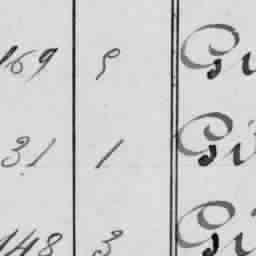 169 9 Gi
31 1 Gi
148 3 Gi